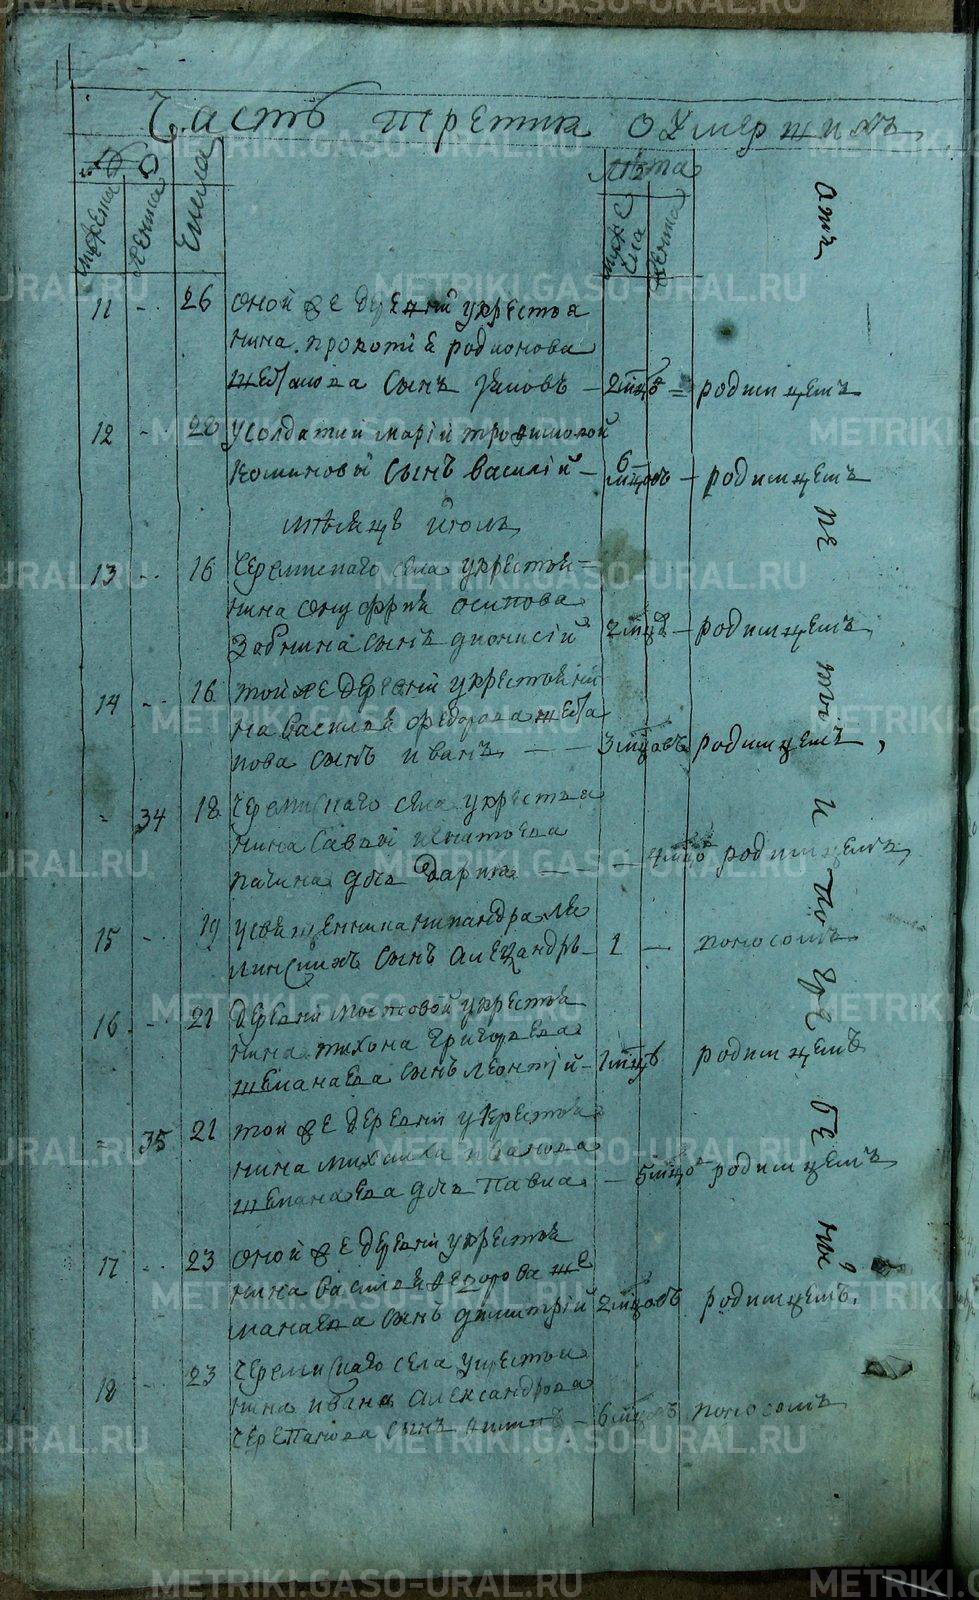 Часть третия о умерших
№
Числа
Лѣта
мужеска
женска
мужеска
женска
отъ
11 - 26 оной же деревни у крестья
нина прокопiя родионова
сынъ - 2 мцовъ - родимцемъ
12 - 28 у солдатки марiи трофимовой
сынъ василiй - 6 мцовъ - родимцемъ
мѣсяцъ июль
13 - 16 Черемискаго села у крестья=
нина онуфрия осипова
Забнина сынъ дионисiй 2 мцъ - родимцемъ
14 - 16 той же деревни у крестьяни
на василея федорова
пова сынъ иванъ - 3 мцовъ родимцемъ,
= 34 18 Черемискаго села у крестья
нина Савы игнатьева
дчь Дарья - 4 мцовъ родимцемъ
15 - 19 у священника никандра
сынъ Александръ - 1 - поносомъ
16 - 21 Деревни мостовой у крестья
нина тихона григорьева
шеманаева сынъ леонтiй - 1 мцъ родимцемъ
= 35 21 той же деревни у крестья
нина михаила иванова
шеманаева дчь Павла - 5 мцовъ родимцемъ
17 - 23 оной же деревни у крестья
нина василея федорова ше
манаева сынъ димитрiй 2 мцовъ родимцемъ.
18 - 23 Черемискаго села у крестья
нина ивана александрова
Черепанова сынъ - 6 мцовъ поносомъ
METRIKI.GASO-URAL.RU